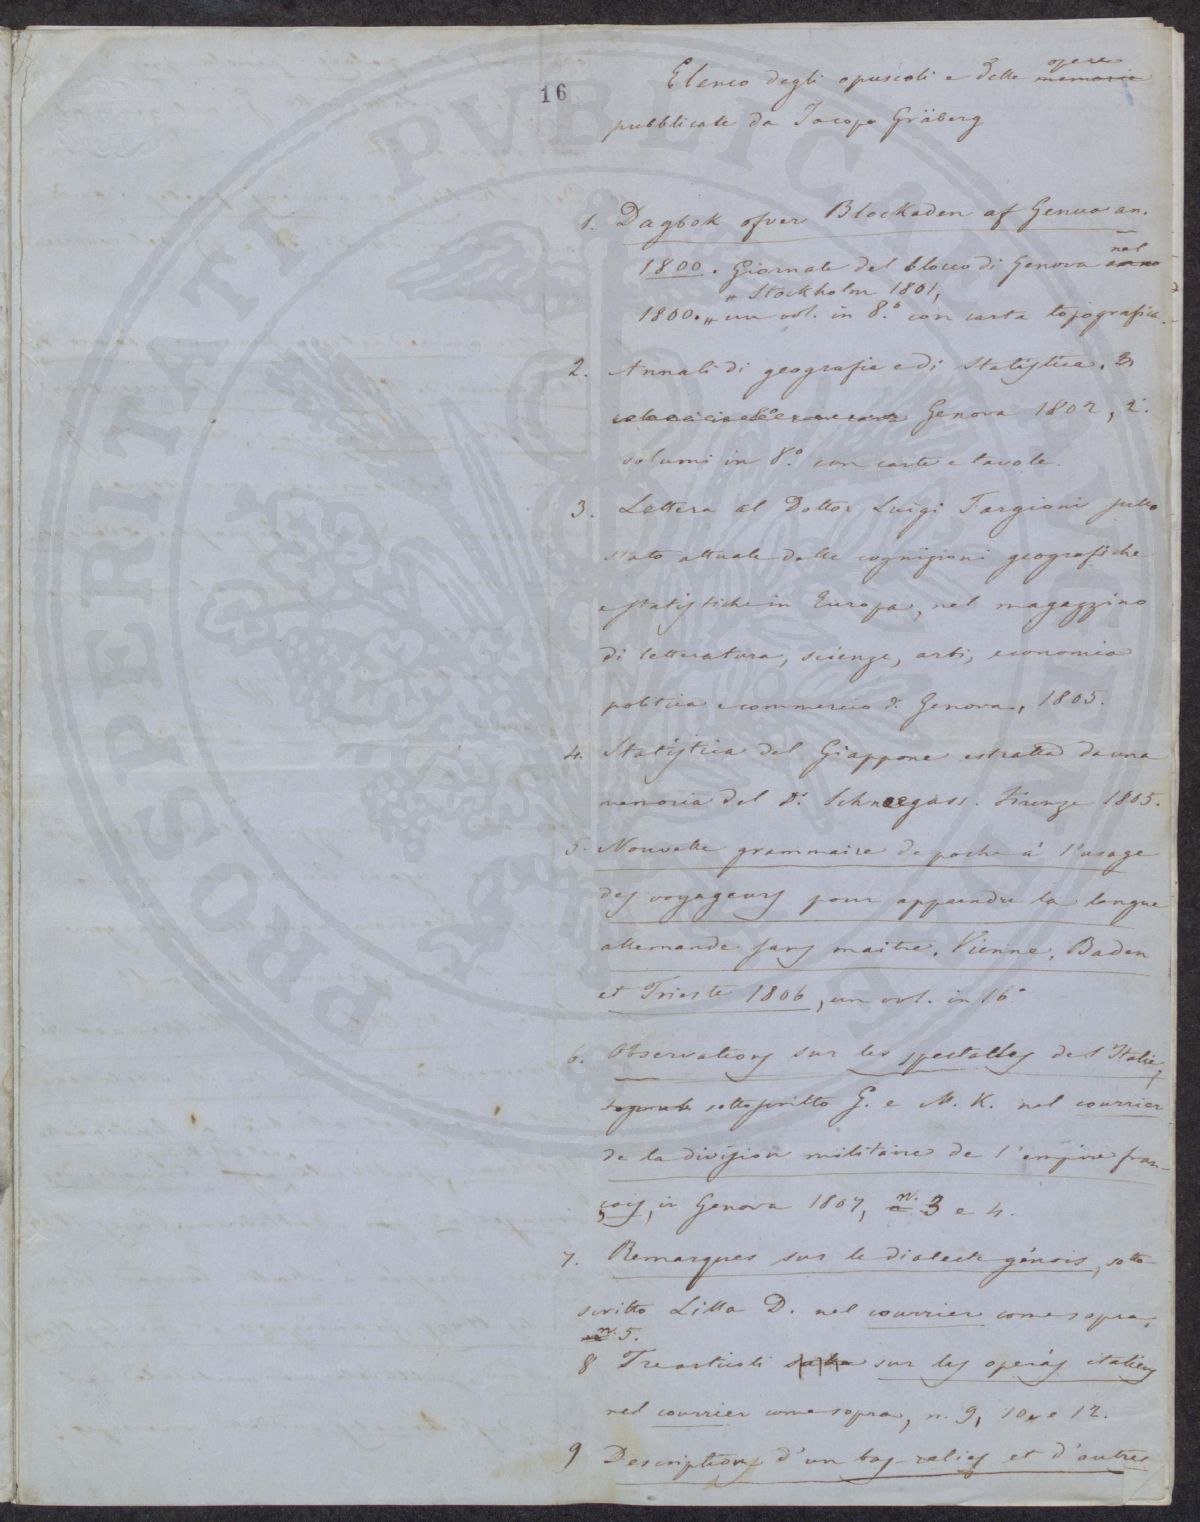 16
Elenco degli opuscoli e delle opere memorie
pubblicate da Iacopo Gräberg
1. Dagbok ofver Blockaden af Genua an.
1800. Giornale del blocco di Genova nel anno
„ Stockholm 1801,
1800. „ un vol. in 8.° con carta topografica.
2. Annali di geografia e di statistica. 3
Genova 1802, 2.
volumi in 8.° con carte e tavole.
3. Lettera al Dottor Luigi Targioni sullo
stato attuale delle cognizioni geografiche
e statistiche in Europa, nel magazzino
di letteratura, scienze, arti, economia
politica e commercio di Genova, 1805.
4. Statistica del Giappone estratta da una
memoria del Sr. Schneegass. Firenze 1805.
5. Nouvelle grammaire de poche à l'usage
des voyageurs pour apprendre la langue
allemande sans maitre. Vienne, Baden
et Trieste 1806, un vol. in 16°
6. Observations sur les spectacles de l'Italie,
sottoscritto G. e M. K. nel courrier
de la division militaire de l'empire fran-
çois, in Genova 1807, n. 3 e 4.
7. Remarques sur le dialecte génois, sotto-
scritto Litta D. nel courrier come sopra,
n. 5.
8 Tre articoli sur les operas italiens
nel courrier come sopra, n. 9, 10, e 12.
9 Descriptions d'un bas-relief et d'autres